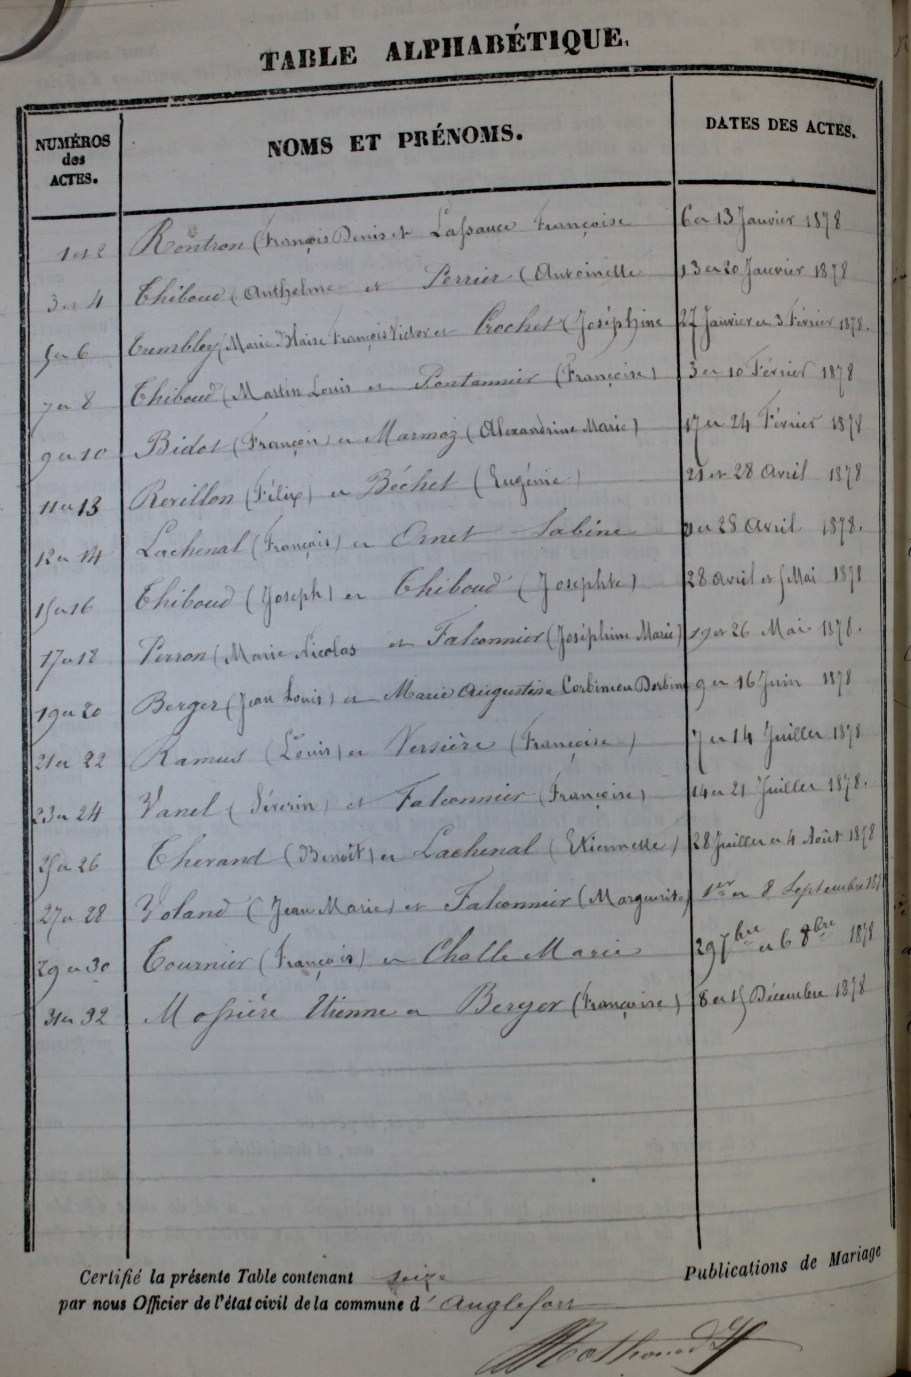 TABLE ALPHABÉTIQUE.
NUMÉROS des ACTES. NOMS ET PRÉNOMS. DATES DES ACTES.
1 et 2 Rontron (François Denis et Lassauce Françoise 6 et 13 Janvier 1878
3 et 4 Thiboud (Anthelme et Perrier (Antoinette 13 et 20 Janvier 1878
5 et 6 Trembley (Marie Blaise François Victor et Crochet (Joséphine 27 Janvier et 3 Février 1878.
7 et 8 Thiboud (Martin Louis et Pontannier (Françoise) 3 et 10 Février 1878
9 et 10 Bidot (François) et Marmoz (Alexandrine Marie) 17 et 24 Février 1878
11 et 13 Revillon (Félix) et Béchet (Eugénie) 21 et 28 Avril 1878
12 et 14 Lachenal (François) et Ornet Sabine 21 et 28 Avril 1878.
15 et 16 Thiboud (Joseph) et Thiboud (Josephte) 28 avril et 5 Mai 1878
17 et 18 Perron (Marie Nicolas et Falconnier (Joséphine Marie) 19 et 26 Mai 1878.
19 et 20 Berger (Jean Louis) et Marie Augustine Corbineau 9 et 16 Juin 1878
21 et 22 Ramus (Louis) et Versière (Françoise) 7 et 14 Juillet 1878
23 et 24 Vanel (Séverin) et Falconnier (Françoise) 14 et 21 Juillet 1878.
25 et 26 Cherand (Benoît) et Lachenal (Etiennette) 28 Juillet et 4 Août 1878
27 et 28 Voland (Jean Marie) et Falconnier (Marguerite) 1er et 8 Septembre 1878
29 et 30 Tournier (François) et Challe Marie 29 7bre et 6 8bre 1878
31 et 32 Mossiére Etienne et Berger (Françoise) 8 et 15 Décembre 1878
Certifié la présente Table contenant seize Publications de Mariage
par nous Officier de l'état civil de la commune d' Anglefort